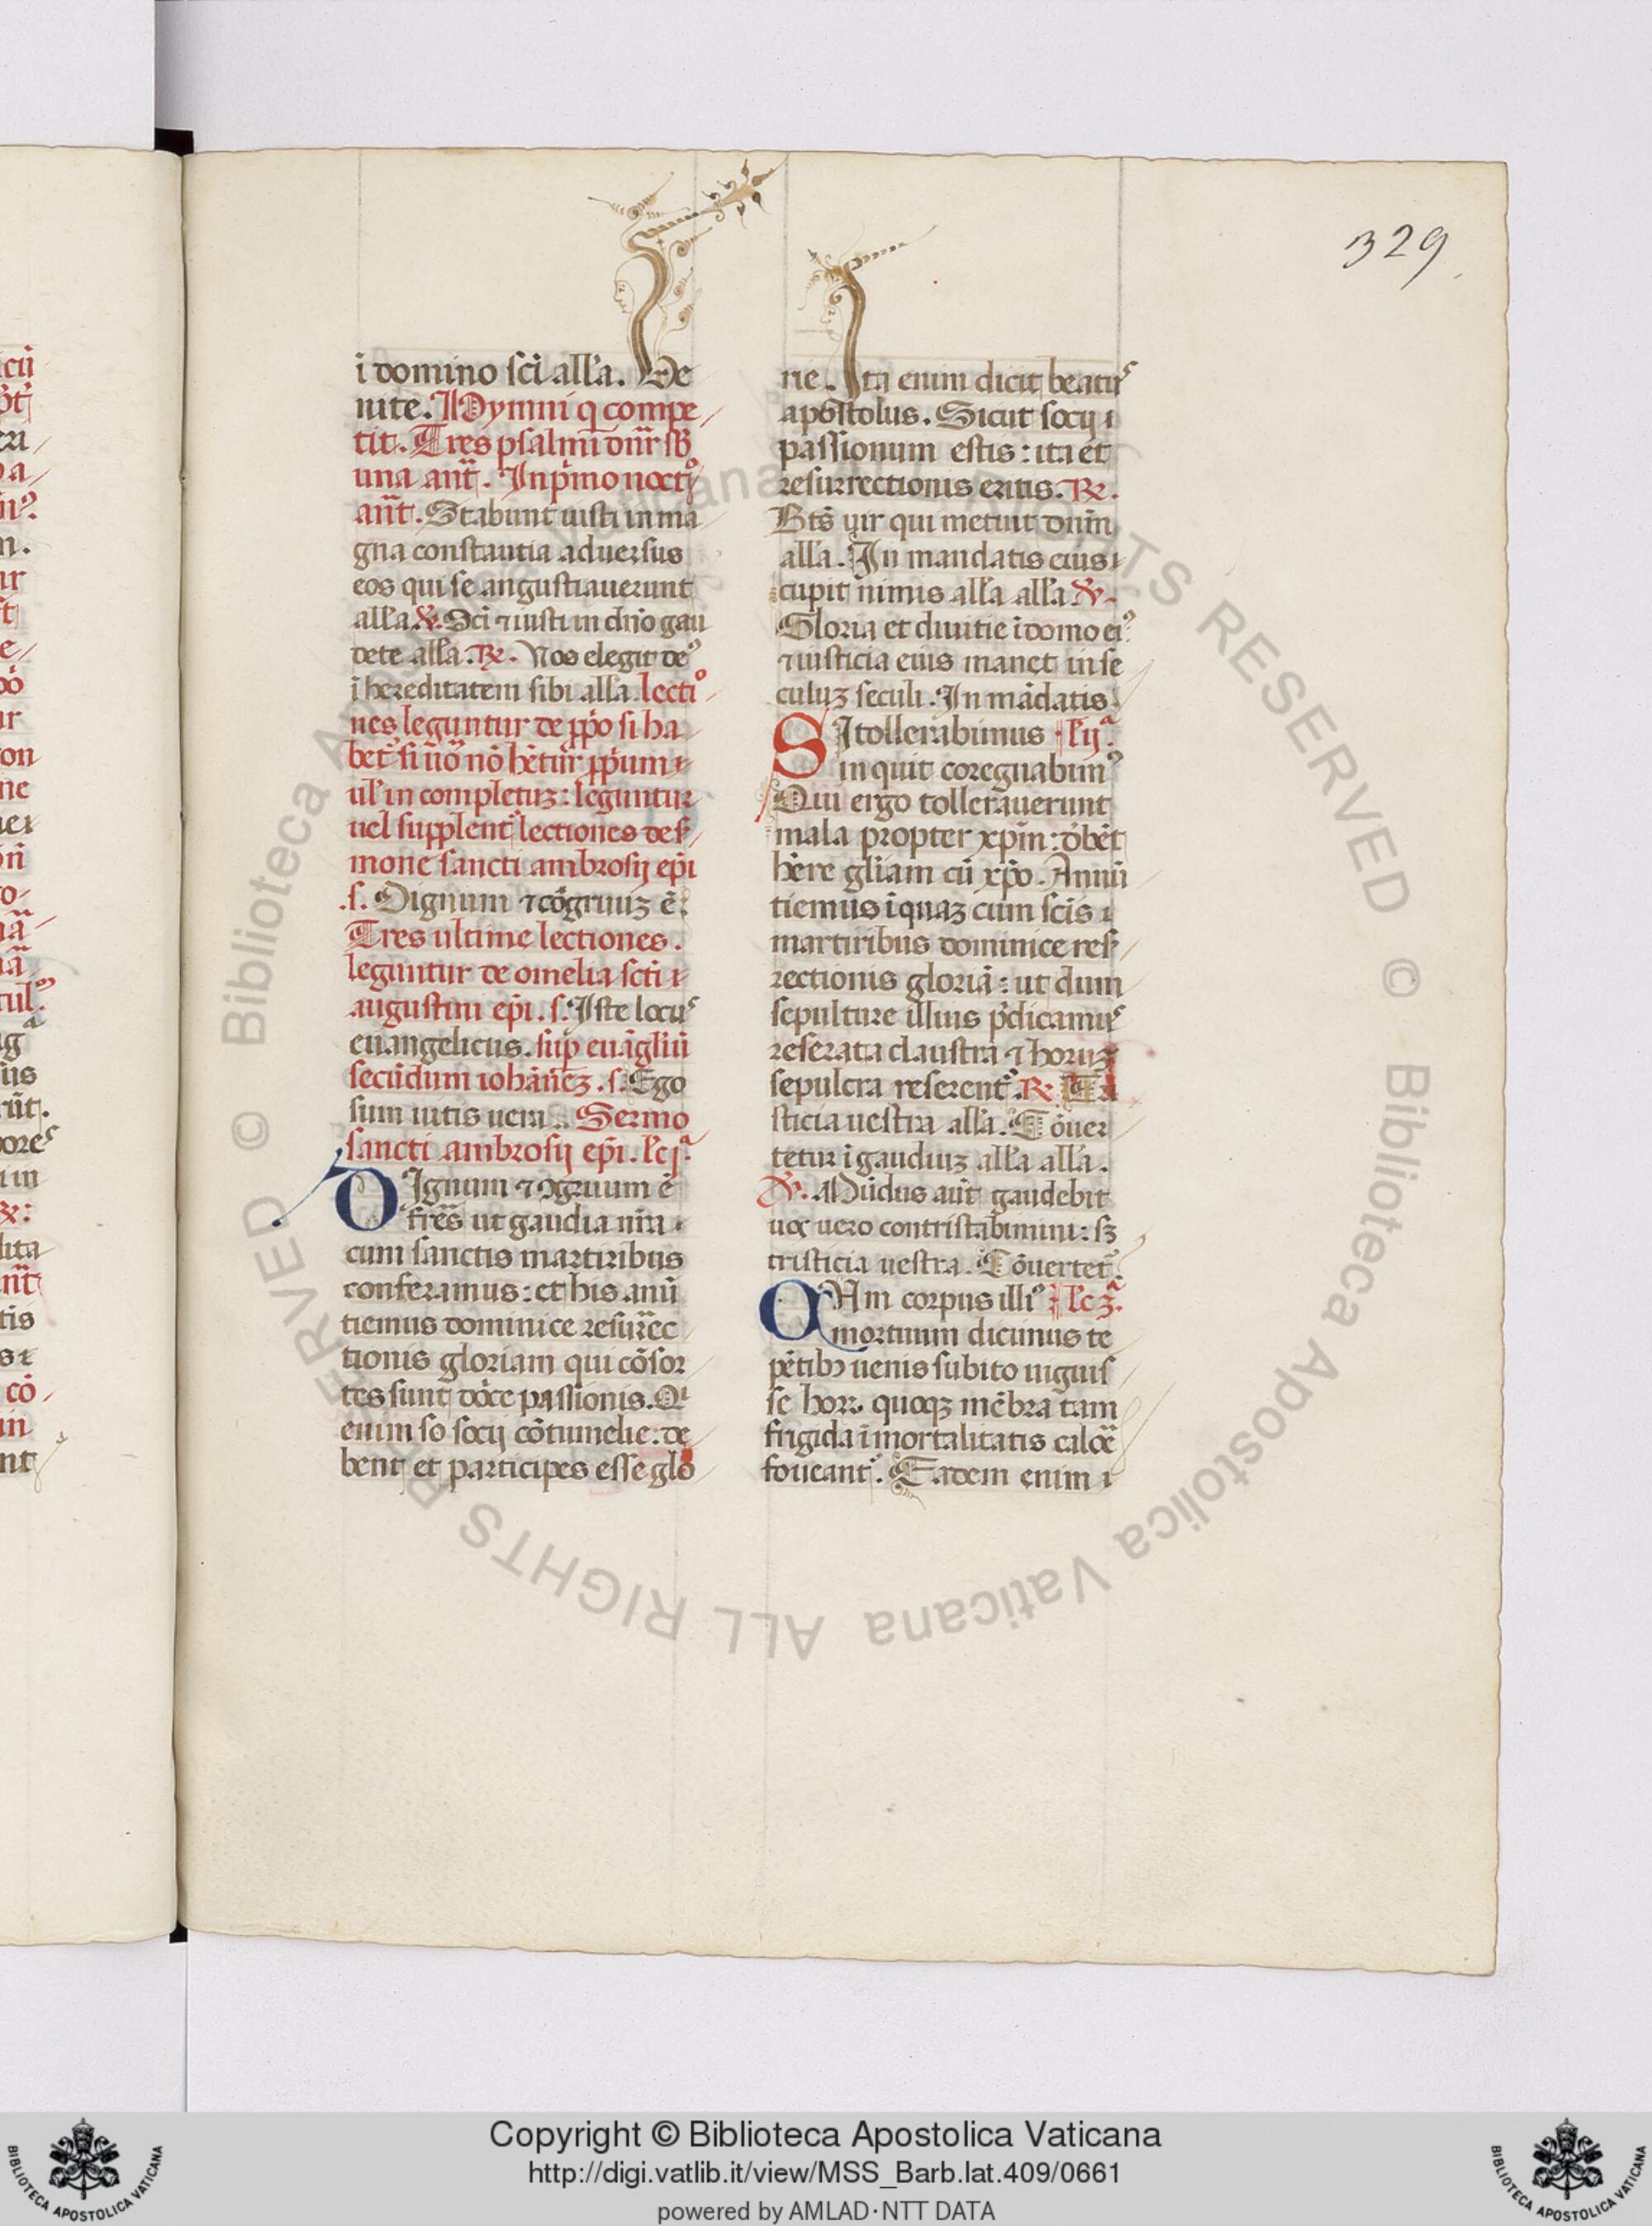 329
i domino sc̄i all'a. Ve
nite. Hymni q̄ compe
tit. Tres psalmi dn̄r sb
una an̄t. In p̄mo noct.
an̄t. Stabunt iusti in ma
gna constantia adversus
eos qui se angustiaverunt
all'a. V. Sc̄i ⁊ iusti in dn̄o gau
dete all'a. R. Nos elegit de⁹
ī hereditatem sibi all'a. lecti⁹
nes leguntur de pp̄o si ha
bet² si uō nō hētur pp̄um
ul' in completuꝫ: leguntur
uel supplent² lectiones de ser
mone sancti ambrosij ep̄i
.s. Dignum ⁊ cōgruuꝫ ē.
Tres ultime lectiones.
leguntur de omelia sc̄ti
augustini ep̄i. s. Iste locus
euangelicus. sup̄ euāgliū
secūdum iohānēꝫ. s. Ego
sum uitis uera. Sermo
sancti ambrosij ep̄i. lc̄ j.ª
DIgnum ⁊ ꝯgruum ē
fr̄es ut gaudia nr̄a
cum sanctis martiribus
conferamus: et his anū
tiemus dominice resurrec
tionis gloriam qui cōsor
tes sunt dn̄ice passionis. Qi
enim so socij cōtumelie: de
bent et participes esse glo
rie. Ita enim dicit beatus
apostolus. Sicut socij
passionum estis: ita et
resurrectionis eritis. R.
Bt̄s uir qui metuit dnm̄
all'a. In mandatis eius
cupit nimis all'a all'a. V.
Gloria et diuitie ī domo ei⁹
⁊ iusticia eius manet in se
culuꝫ seculi. In mādatis
SI tollerabimus lc̄ ij.ª
inquit coregnabim⁹
Qui ergo tolleraverunt
mala propter xp̄m: dēbēt
hēre gl̄iam cū xp̄o. Annū
tiemus īquaꝫ cum sc̄is
martiribus dominice resur
rectionis gloriā: ut dum
sepulture illius p̄dicamus
reserata claustra ⁊ horuꝫ
sepulcra reserent². R. Tri
sticia uestra all'a. Cōuer
tetur ī gaudiuꝫ all'a all'a.
V. Mūdus aūt gaudebit
uos uero contristabimini: sꝫ
tristicia uestra. Cōuertet².
QUam corpus illi⁹ lc̄ 3.ª
mortuum dicimus te
pētibꝫ uenis subito uiguis
se hoꝝ quoqꝫ mēbra tam
frigida īmortalitatis caloē
foueant². Eadem enim
Copyright © Biblioteca Apostolica Vaticana
http://digi.vatlib.it/view/MSS_Barb.lat.409/0661
powered by AMLAD·NTT DATA